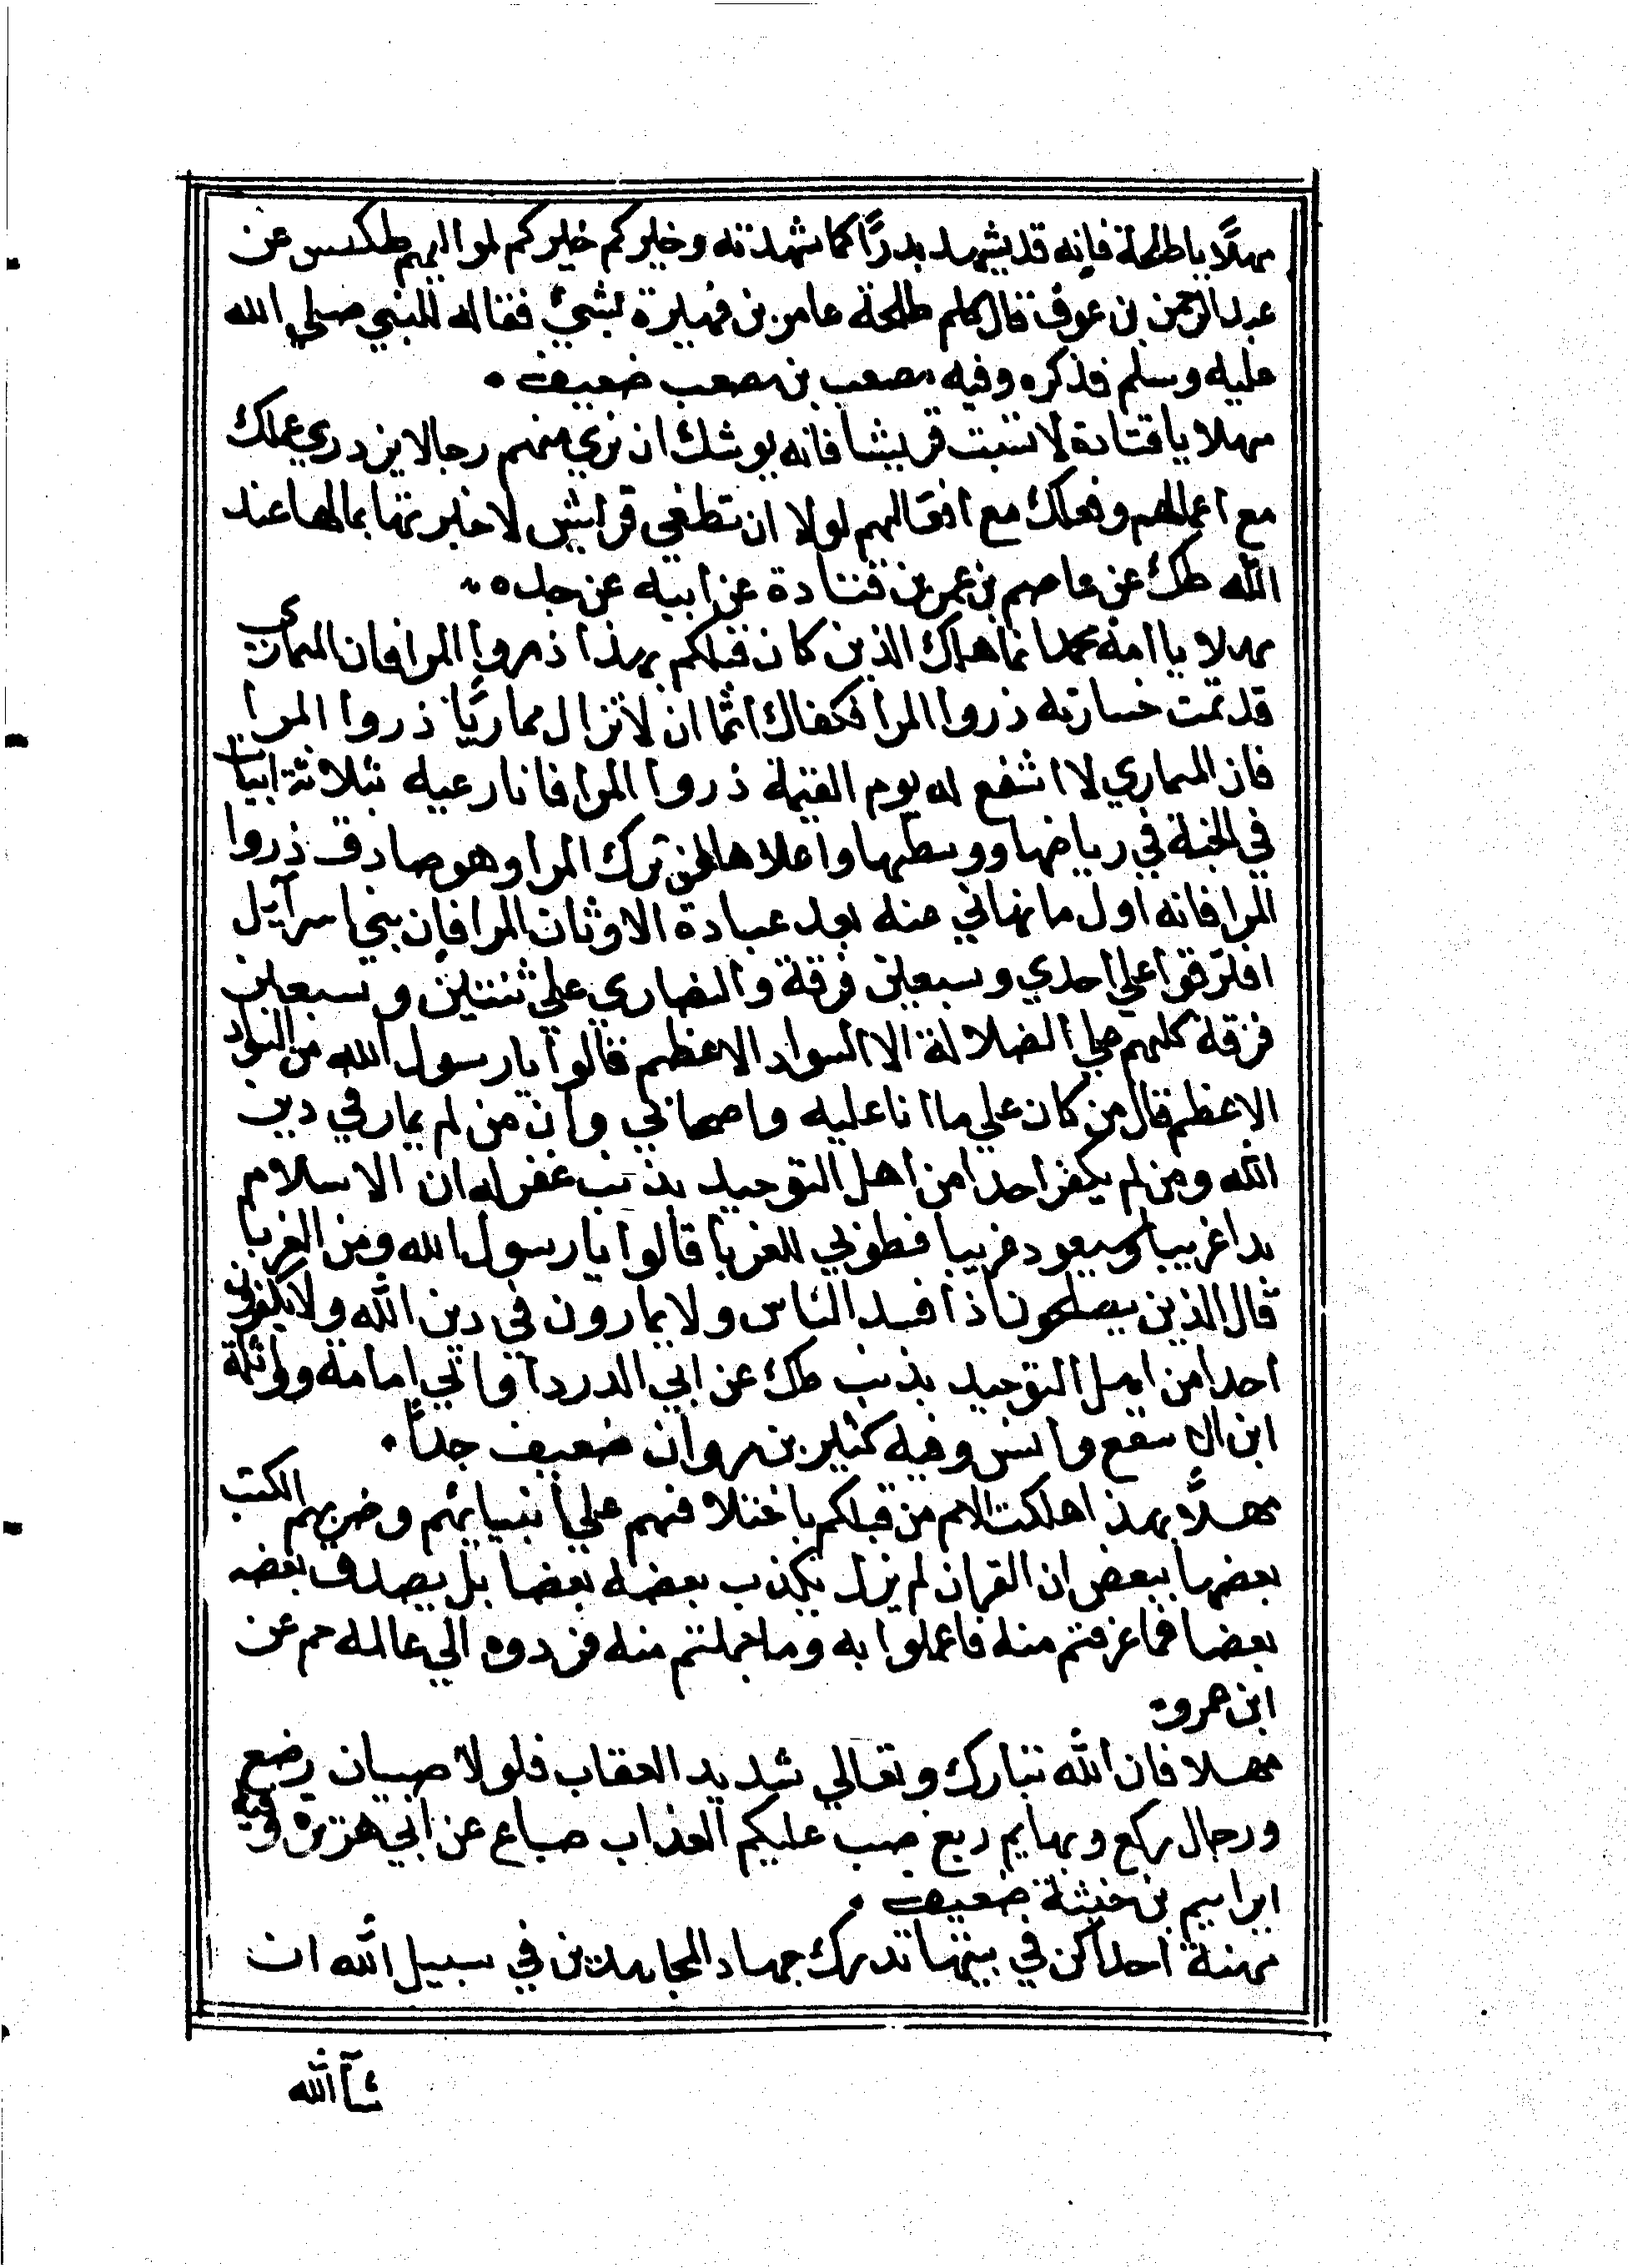 مهلًا يا طلحة فإنه قد شهد بدرًا كما شهدته وخيركم خيركم لمواليهم طكس عن
عبد الرحمن بن عوف قال كلم طلحة عامر بن فهيرة بشيئ فقاله النبي صلي الله
عليه وسلم فذكره وفيه مصعب بن مصعب ضعيف .
مهلا يا قتادة لا تسبت قريشا فانه يوشك ان تري منهم رجالا يزدري عملك
مع اعمالهم وفعلك مع افعالهم لولا ان تطغي قرايش لاخبرتها بمالها عند
الله طك عن عاصم بن عمر بن قتادة عن ابيه عن جده
مهلا يا امة محمد انما هلك الذين كان قبلكم بهذا ذروا المرا فان المماري
قد تمت خسارته ذروا المرا فكفاك اثما ان لا تزال مماريًا ذروا المرا
فان المماري لا اشفع له يوم القيمة ذروا المرا فانا زعيه بثلاثة ابيات
في الجنة في رياضها ووسطها واعلاها لمن ترك المرا وهو صادق ذروا
المرا فانه اول ما نهاني عنه بعد عبادة الاوثان المرا فإن بني اسرآيل
افترقوا علي احدي وسبعين فرقة والنصاري علي ثنتين وسبعين
فرقة كلهم علي الضلالة الا السواد الاعظم قالوا يا رسول الله من السواد
الاعظم قال من كان علي ما انا عليه واصحابي وان من لم يمار في دين
الله ومن لم يكفر احدا من اهل التوحيد بذنب غفر له ان الاسلام
بدا غريبا وسيعود غريبا فطوبي للغربا قالوا يا رسول الله ومن الغربا
قال الذين يصلحون اذا افسد الناس ولا يمارون في دين الله ولا يكفرون
احدا من اهل التوحيد بذنب طك عن ابي الدردآ وابي امامة وواثلة
ابن الاسقع وانس وفيه كثير بن مروان ضعيف جداً .
مهلًا بهذا هلكت الامم من قبلكم باختلافهم علي انبيايهم وضربهم الكتب
بعضها ببعض ان القران لم ينزل يكذب بعضه بعضا بل يصدق بعضه
بعضا فما عرفتم منه فاعملوا به وما جهلتم منه فردوه الي عالمه حم عن
ابن عمرو
مهلا فان الله تبارك وتعالي شديد العقاب فلولا صبيان رضع
ورجال ركع وبهايم ربع صب عليكم العذاب صباع عن ابي هريرة وفيه
ابراهيم بن خيثة ضعيف .
مهنة احداكن في بيتها تدرك جهاد المجاهدين في سبيل الله ان
شآ الله